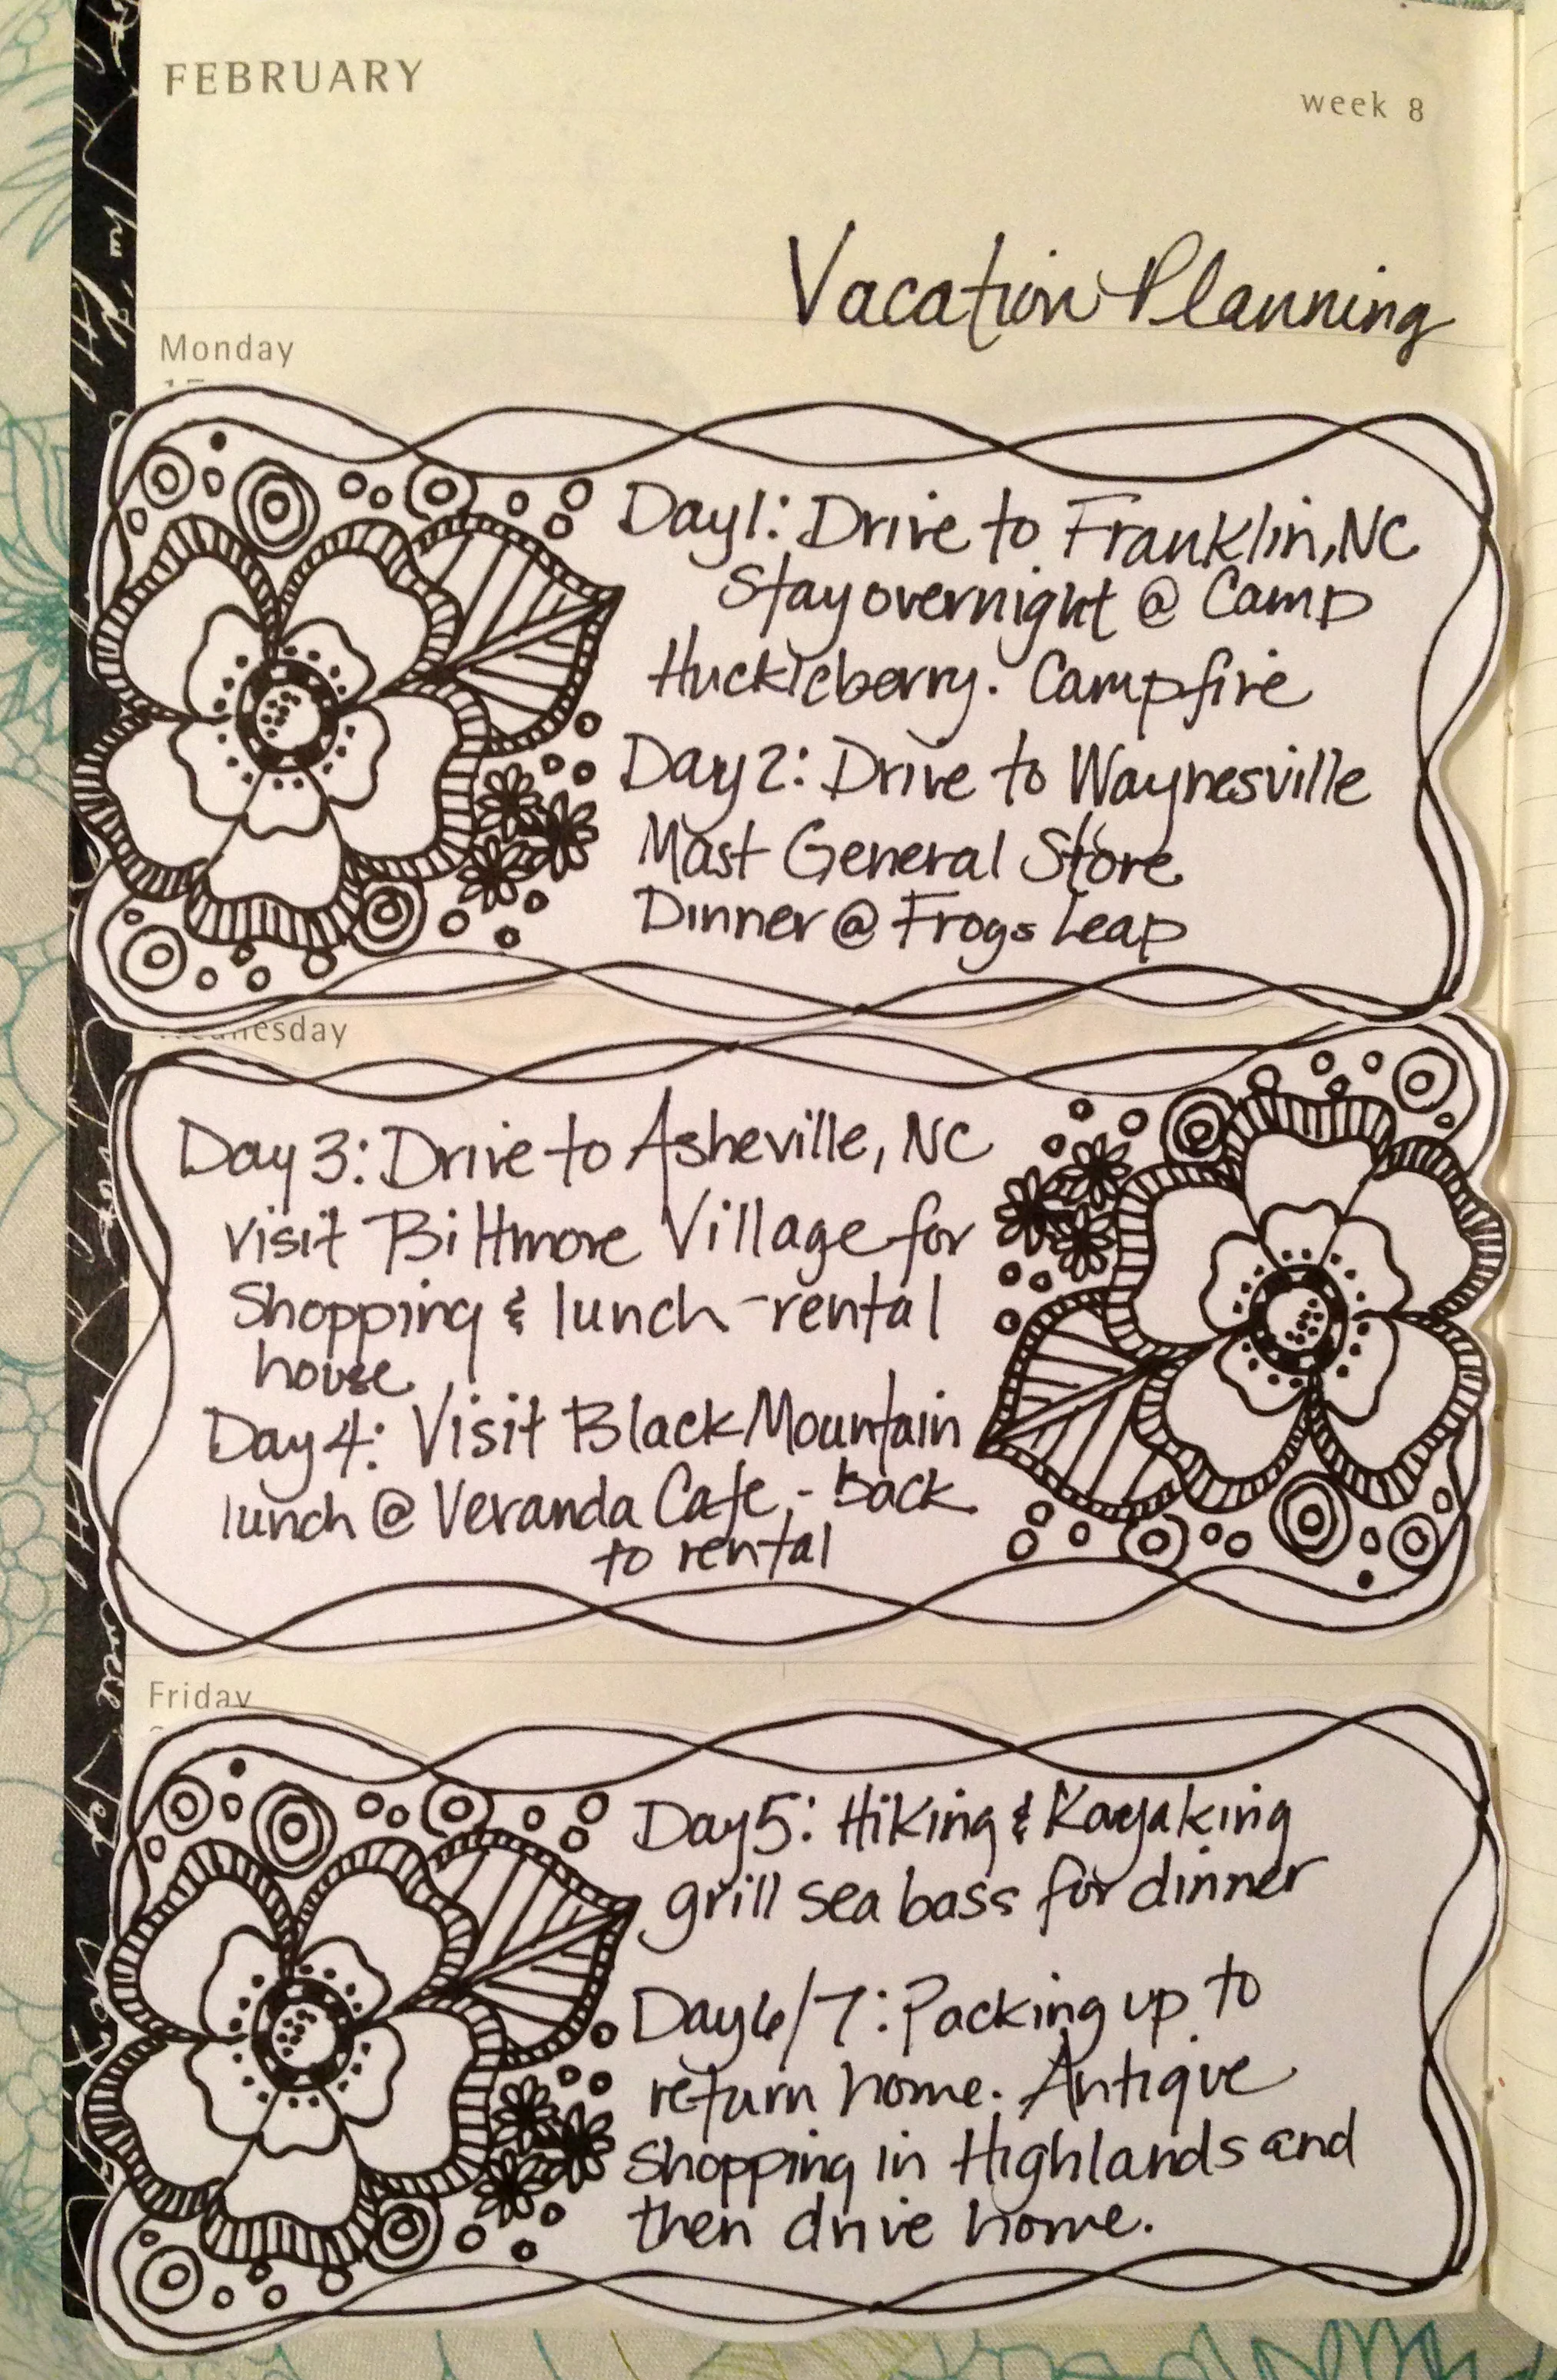 FEBRUARY
week 8
Vacation Planning
Monday
Day 1: Drive to Franklin, NC
Stay overnight @ Camp
Huckleberry. Campfire
Day 2: Drive to Waynesville
Mast General Store
Dinner @ Frogs Leap
Wednesday
Day 3: Drive to Asheville, NC
visit Biltmore Village for
Shopping & lunch - rental
house
Day 4: Visit Black Mountain
lunch @ Veranda Cafe - back
to rental
Friday
Day 5: Hiking & Kayaking
grill sea bass for dinner
Day 6/7: Packing up to
return home. Antique
Shopping in Highlands and
then drive home.